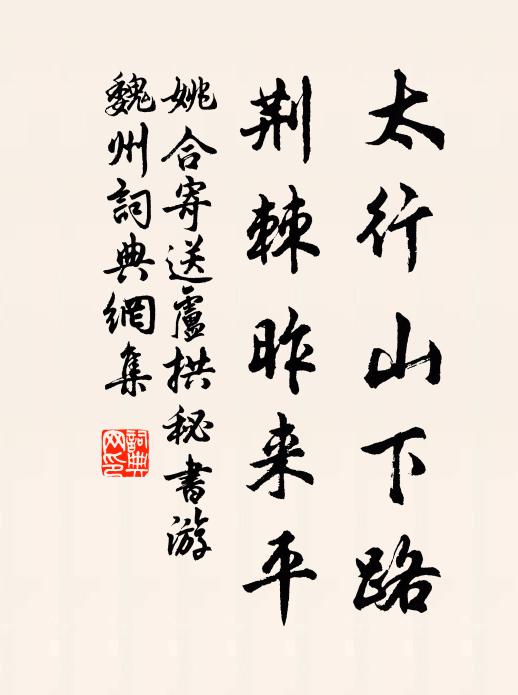 太行山下路
荆棘昨来平
姚合寄送盧拱秘書游
魏州詞典網集
詞典
网印